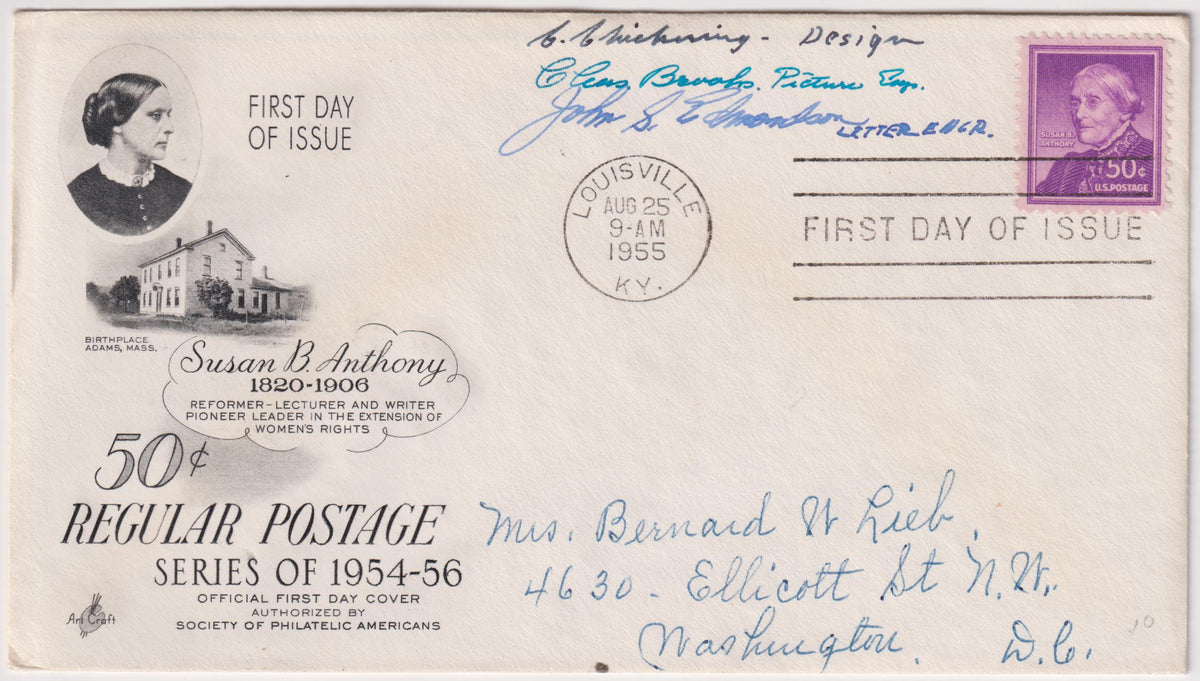 C. Chickering - Design
Cleas. Brooks. Picture Engr.
John S. Edmondson LETTER ENGR.
FIRST DAY
OF ISSUE
SUSAN B.
ANTHONY
50¢
U.S. POSTAGE
LOUISVILLE
AUG 25
9-AM
1955
KY.
FIRST DAY OF ISSUE
BIRTHPLACE
ADAMS, MASS.
Susan B. Anthony
1820-1906
REFORMER-LECTURER AND WRITER
PIONEER LEADER IN THE EXTENSION OF
WOMEN'S RIGHTS
50¢
REGULAR POSTAGE
SERIES OF 1954-56
OFFICIAL FIRST DAY COVER
AUTHORIZED BY
SOCIETY OF PHILATELIC AMERICANS
Art Craft
Mrs. Bernard W Lieb,
4630 - Ellicott St N.W.,
Washington, D.C.
10